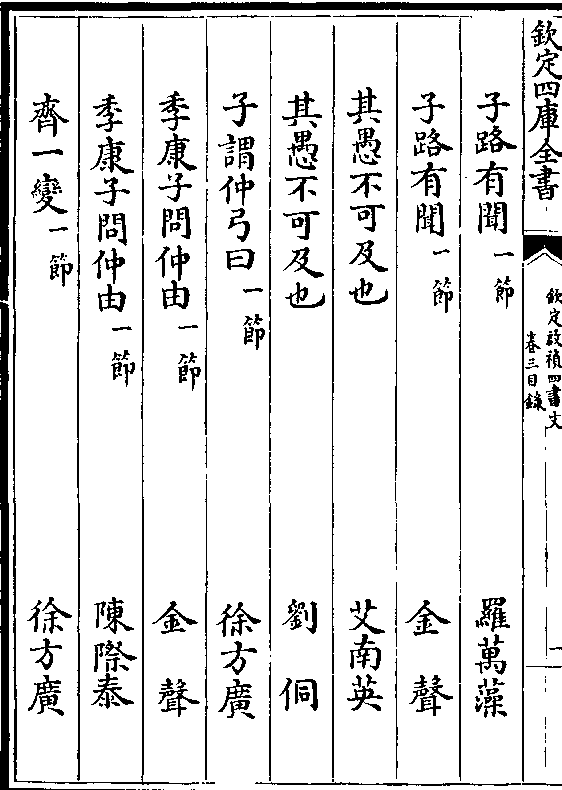 欽定四庫全書
欽定啟禎四書文
卷三目錄
一
子路有聞一節 羅萬藻
子路有聞一節 金聲
其愚不可及也 艾南英
其愚不可及也 劉侗
子謂仲弓曰一節 徐方廣
季康子問仲由一節 金聲
季康子問仲由一節 陳際泰
齊一變一節 徐方廣